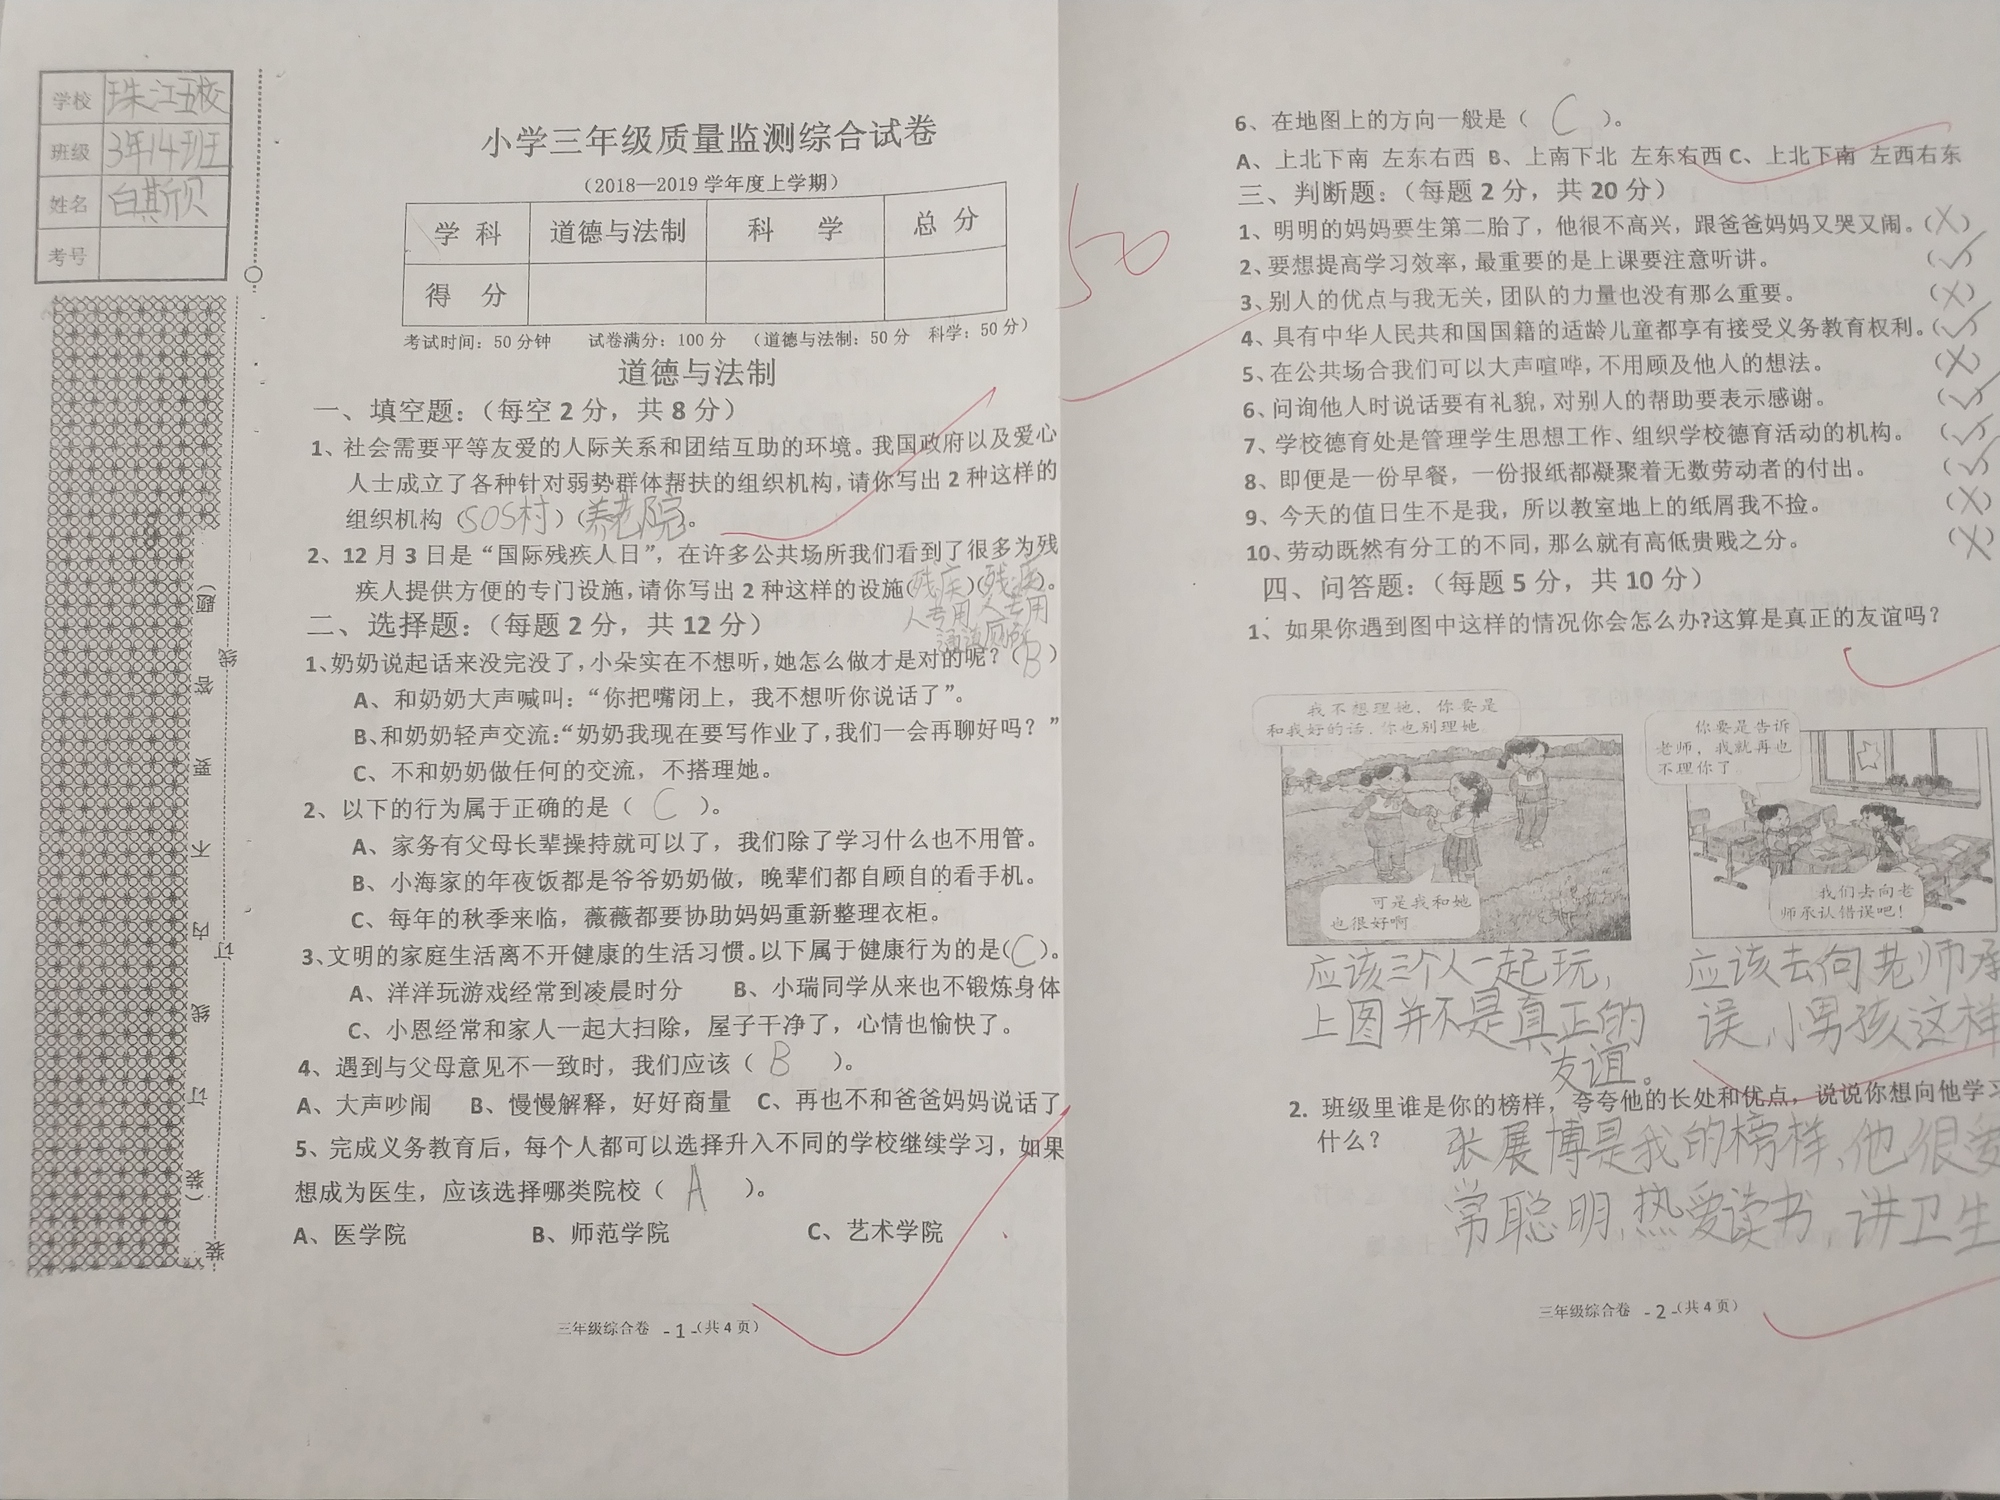 学校 珠江五校
班级 3年14班
姓名 白斯贝
考号
小学三年级质量监测综合试卷
（2018—2019 学年度上学期）
学 科 道德与法制 科 学 总 分
得 分
考试时间：50 分钟 试卷满分：100 分 （道德与法制：50 分 科学：50 分）
道德与法制
一、填空题：（每空 2 分，共 8 分）
1、社会需要平等友爱的人际关系和团结互助的环境。我国政府以及爱心
人士成立了各种针对弱势群体帮扶的组织机构，请你写出 2 种这样的
组织机构（SOS村）（养老院）。
2、12 月 3 日是“国际残疾人日”，在许多公共场所我们看到了很多为残
疾人提供方便的专门设施，请你写出 2 种这样的设施（残疾）（残疾）。
人专用 人专用
通道 厕所
二、选择题：（每题 2 分，共 12 分）
1、奶奶说起话来没完没了，小朵实在不想听，她怎么做才是对的呢？（B）
A、和奶奶大声喊叫：“你把嘴闭上，我不想听你说话了”。
B、和奶奶轻声交流：“奶奶我现在要写作业了，我们一会再聊好吗？”
C、不和奶奶做任何的交流，不搭理她。
2、以下的行为属于正确的是（ C ）。
A、家务有父母长辈操持就可以了，我们除了学习什么也不用管。
B、小海家的年夜饭都是爷爷奶奶做，晚辈们都自顾自的看手机。
C、每年的秋季来临，薇薇都要协助妈妈重新整理衣柜。
3、文明的家庭生活离不开健康的生活习惯。以下属于健康行为的是（C）。
A、洋洋玩游戏经常到凌晨时分 B、小瑞同学从来也不锻炼身体
C、小恩经常和家人一起大扫除，屋子干净了，心情也愉快了。
4、遇到与父母意见不一致时，我们应该（ B ）。
A、大声吵闹 B、慢慢解释，好好商量 C、再也不和爸爸妈妈说话了
5、完成义务教育后，每个人都可以选择升入不同的学校继续学习，如果
想成为医生，应该选择哪类院校（ A ）。
A、医学院 B、师范学院 C、艺术学院
三年级综合卷 - 1 -（共 4 页）
（装 订 线 内 不 要 答 题）
装 订 线
50
6、在地图上的方向一般是（ C ）。
A、上北下南 左东右西 B、上南下北 左东右西 C、上北下南 左西右东
三、判断题：（每题 2 分，共 20 分）
1、明明的妈妈要生第二胎了，他很不高兴，跟爸爸妈妈又哭又闹。（X）
2、要想提高学习效率，最重要的是上课要注意听讲。（✓）
3、别人的优点与我无关，团队的力量也没有那么重要。（X）
4、具有中华人民共和国国籍的适龄儿童都享有接受义务教育权利。（✓）
5、在公共场合我们可以大声喧哗，不用顾及他人的想法。（X）
6、问询他人时说话要有礼貌，对别人的帮助要表示感谢。（✓）
7、学校德育处是管理学生思想工作、组织学校德育活动的机构。（✓）
8、即便是一份早餐，一份报纸都凝聚着无数劳动者的付出。（✓）
9、今天的值日生不是我，所以教室地上的纸屑我不捡。（X）
10、劳动既然有分工的不同，那么就有高低贵贱之分。（X）
四、问答题：（每题 5 分，共 10 分）
1、如果你遇到图中这样的情况你会怎么办?这算是真正的友谊吗？
我不想理她，你要是
和我好的话，你也别理她
可是我和她
也很好啊
你要是告诉
老师，我就再也
不理你了
我们去向老
师承认错误吧！
应该三个人一起玩，
上图并不是真正的
友谊。
应该去向老师承
误，小男孩这样
2. 班级里谁是你的榜样，夸夸他的长处和优点，说说你想向他学习
什么？
张展博是我的榜样，他很爱
常聪明，热爱读书，讲卫生
三年级综合卷 - 2 -（共 4 页）